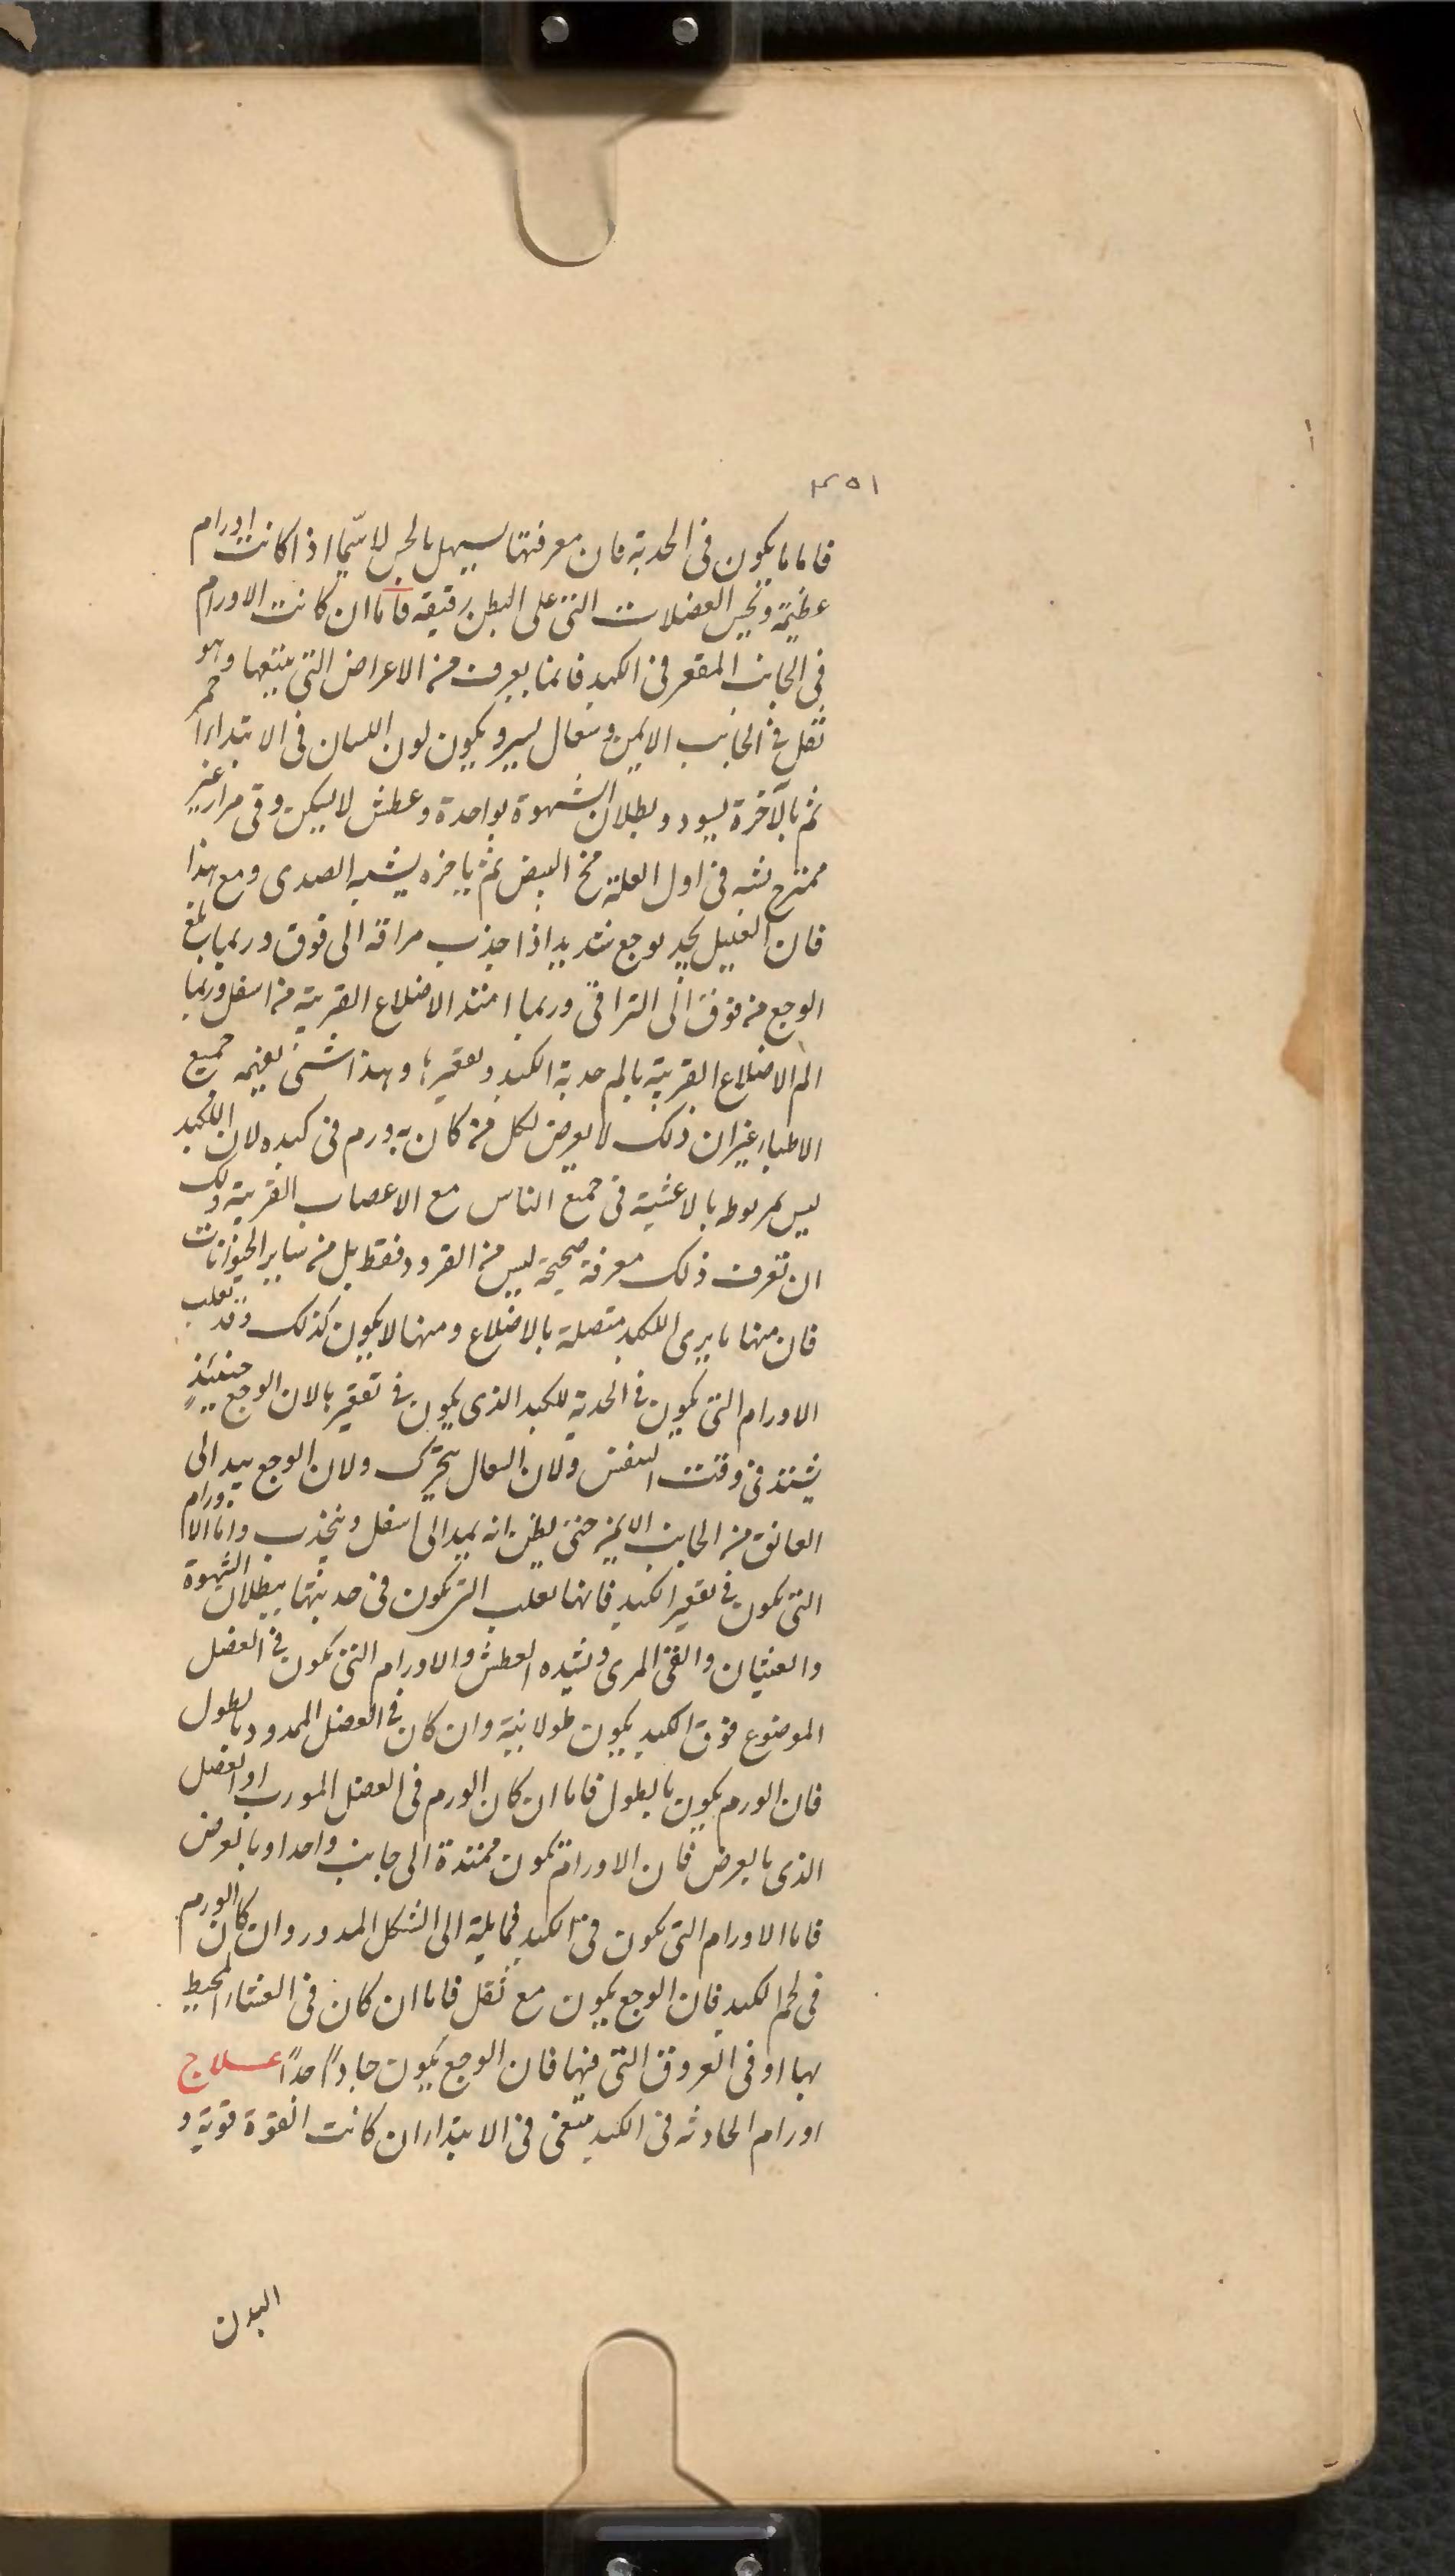 ٣٥١
فاما ما يكون فى الحدبة فان معرفتها سهل بالجس لا سيّما اذا كانت اورام
عظيمة وتجس العضلات التى على البطن رقيقه فاما ان كانت الاورام
فى الجانب المقعر فى الكبد فانما يعرف من الاعراض التى يتبعها وهو
ثقل فى الجانب الايمن وسعال يسير ويكون لون اللسان فى الابتداء احمر
ثم بالآخرة يسود وبطلان الشهوة بواحدة وعطش لا يسكن وقى مرار غير
ممتزج يشبه فى اول العلة مخ البيض ثم ياخره يشبه الصدى ومع هذا
فان العليل يجد بوجع شديد اذا جذب مراقه الى فوق وربما بلغ
الوجع من فوق الى التراقى وربما امتد الاضلاع القريبة من اسفل وربما
الم الاضلاع القريبة بالم حدبة الكبد وتقعيرها وهذا شىء يعمه جميع
الاطباء غير ان ذلك لا يعرض لكل من كان به ورم فى كبده لان الكبد
ليس مربوط بالاغشية فى جميع الناس مع الاعصاب القريبة ولك
ان تعرف ذلك معرفة صحيحة ليس من القرود فقط بل من ساير الحيوانات
فان منها ما يرى الكبد متصلة بالاضلاع ومنها لا يكون كذلك وقد تغلب
الاورام التى يكون فى الحدبة للكبد الذى يكون فى تقعيرها لان الوجع حينئذٍ
يشتد فى وقت التنفس ولان السعال يتحرك ولان الوجع يبد الى
العاتق من الجانب الايمن حتى يظن انه يميد الى اسفل وينجذب واما الاورام
التى يكون فى تقعير الكبد فانها تغلب التى يكون فى حدبتها ببطلان الشهوة
والغثيان والقى المرى وشده العطش والاورام التى يكون فى العضل
الموضوع فوق الكبد يكون طولانية وان كان فى العضل الممدود بالطول
فان الورم يكون بالطول فاما ان كان الورم فى العضل المورب او العضل
الذى بالعرض فان الاورام يكون ممتدة الى جانب واحد او بالعرض
فاما الاورام التى يكون فى الكبد فمايلة الى الشكل المدور وان كان الورم
فى لحم الكبد فان الوجع يكون مع ثقل فاما ان كان فى الغشاء المحيط
بها او فى العروق التى فيها فان الوجع يكون حادًا جدًا علاج
اورام الحادثه فى الكبد ينبغى فى الابتداء ان كانت القوة قوية و
البدن